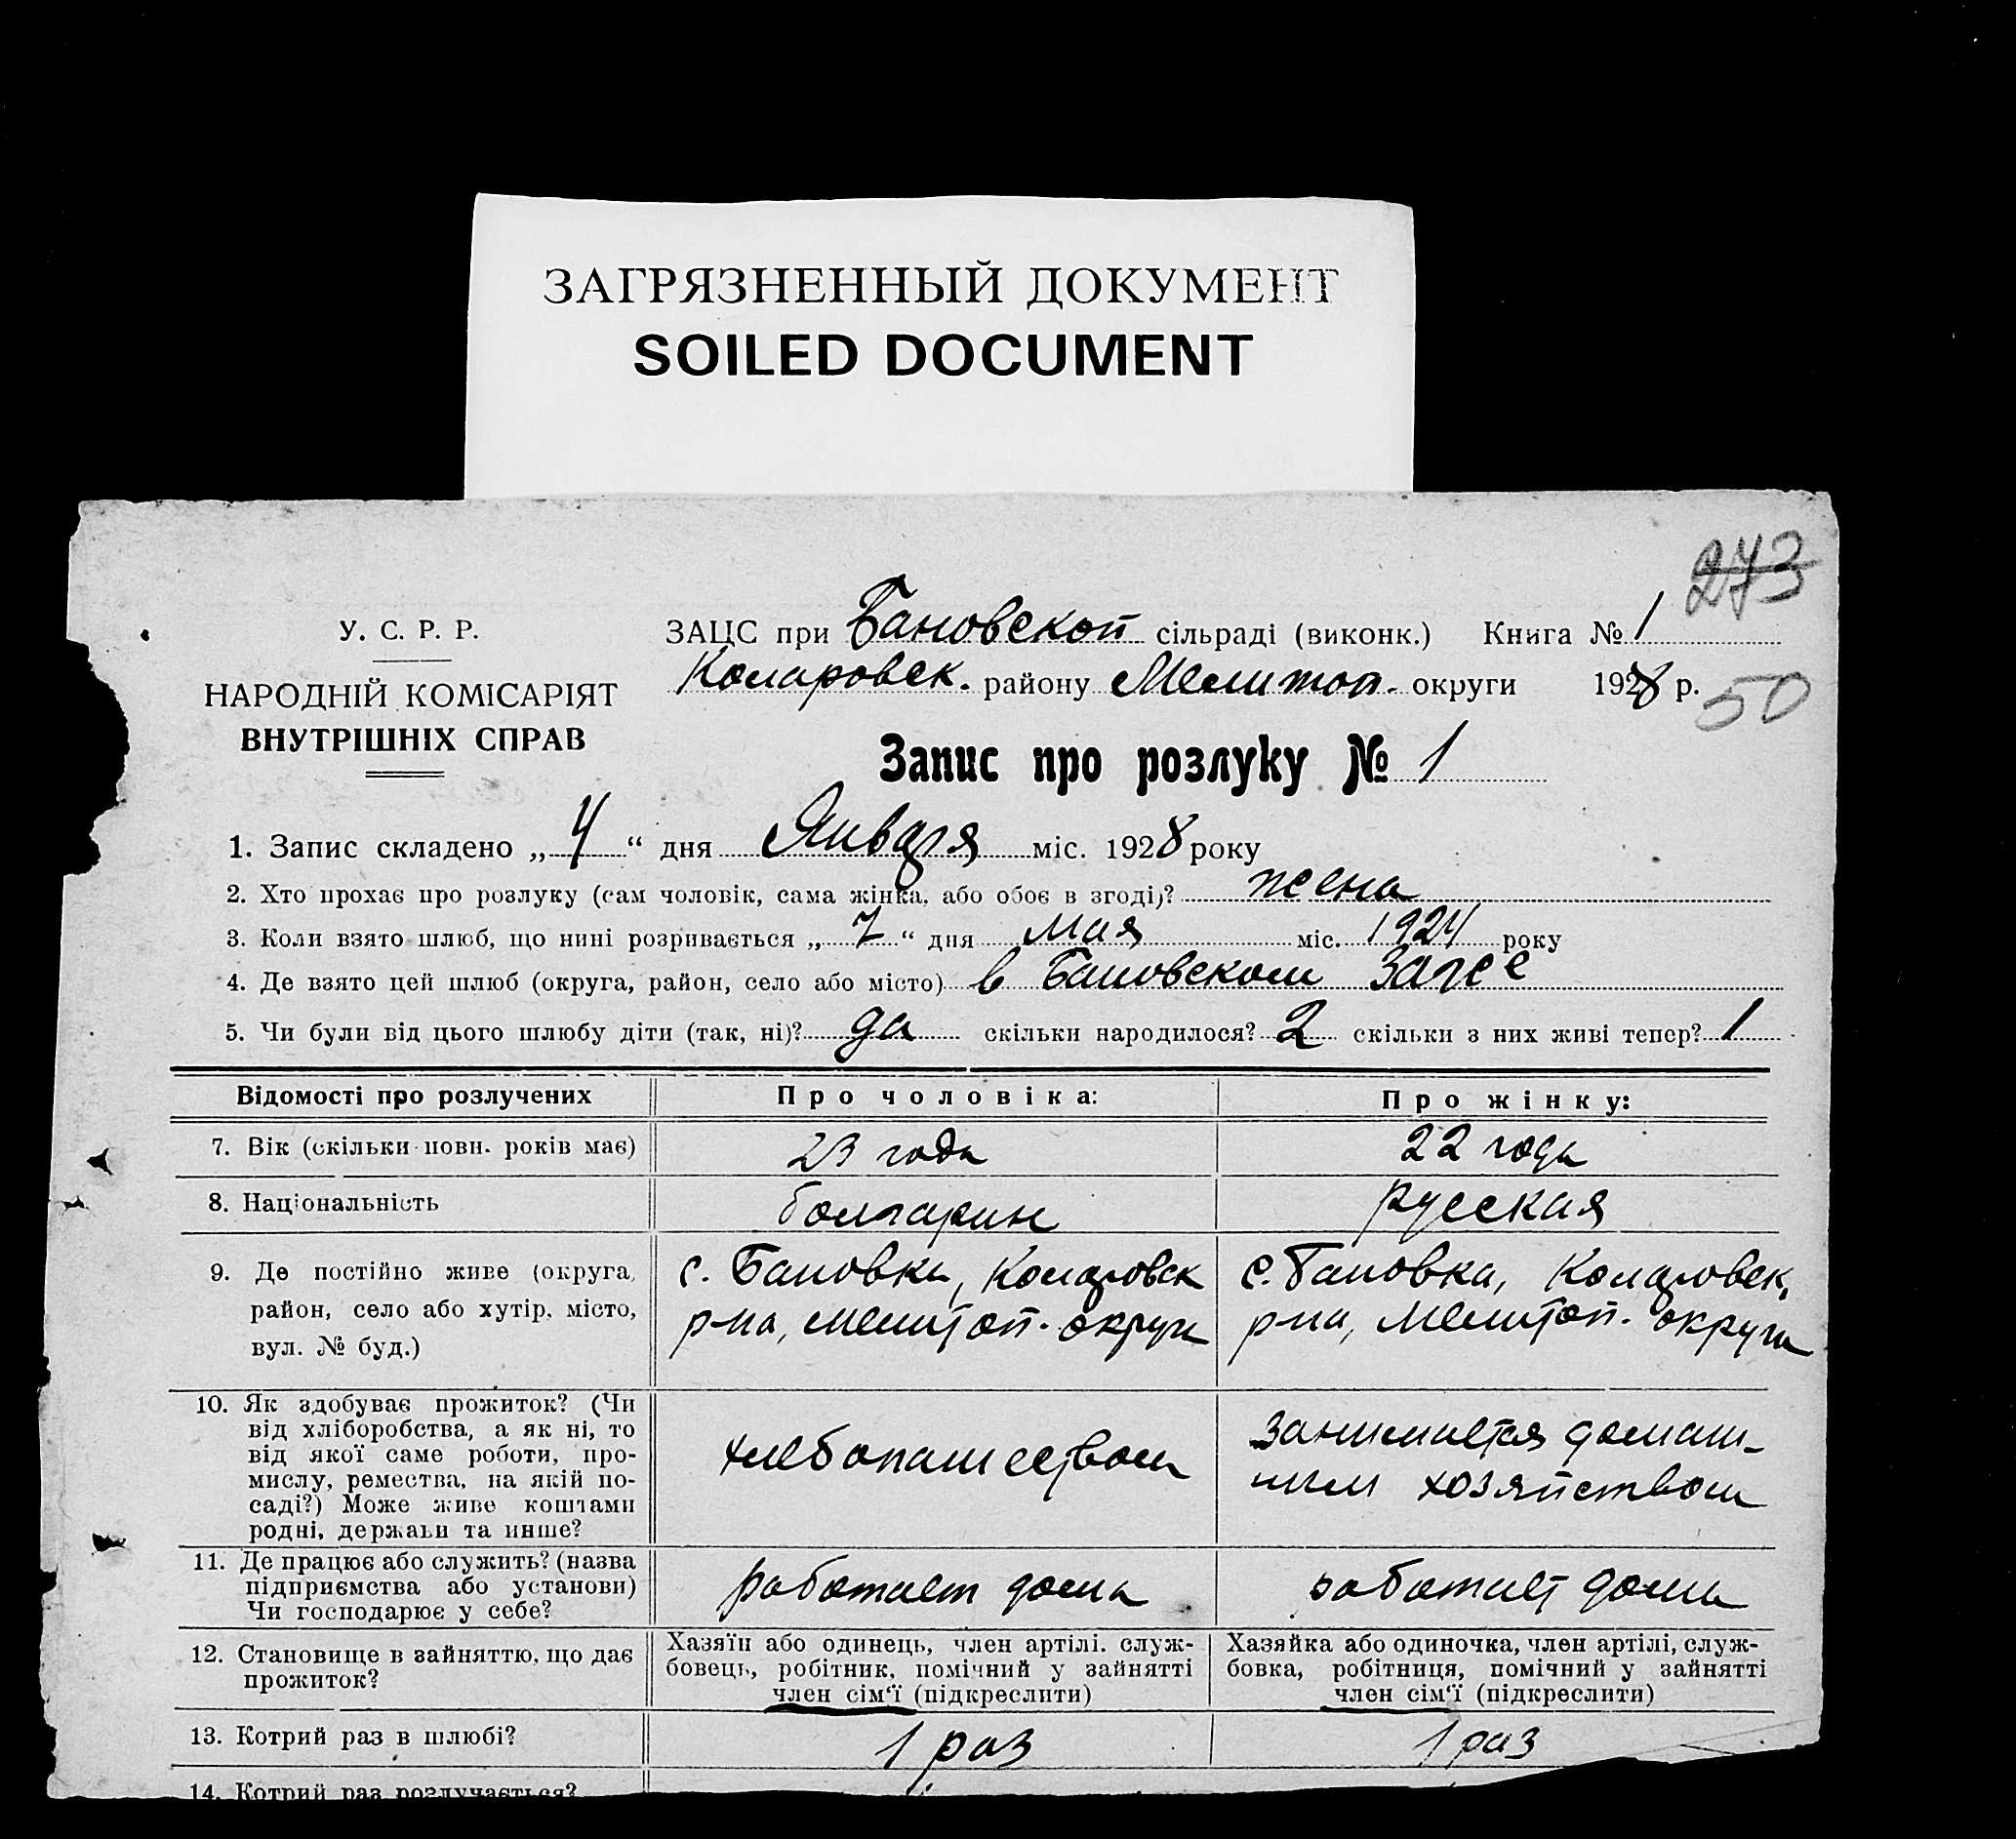 ЗАГРЯЗНЕННЫЙ ДОКУМЕНТ
SOILED DOCUMENT
273
У. С. Р. Р.
НАРОДНІЙ КОМІСАРІЯТ
ВНУТРІШНІХ СПРАВ
ЗАЦС при Бановской сільраді (виконк.) Книга № 1
Коларовск. району Мелитоп. округи 1928 р.
50
Запис про розлуку № 1
1. Запис складено „4“ дня Января міс. 1928 року
2. Хто прохає про розлуку (сам чоловік, сама жінка, або обоє в згоді)? жена
3. Коли взято шлюб, що нині розривається „7“ дня мая міс. 1924 року
4. Де взято цей шлюб (округа, район, село або місто) в Бановском Загсе
5. Чи були від цього шлюбу діти (так, ні)? да скільки народилося? 2 скільки з них живі тепер? 1
Відомості про розлучених
Про чоловіка:
Про жінку:
7. Вік (скільки повн. років має)
23 года
22 года
8. Національність
болгарин
русская
9. Де постійно живе (округа,
район, село або хутір, місто,
вул. № буд.)
с. Бановка, Коларовск
р-на, Мелитоп. округи
с. Бановка, Коларовск.
р-на, Мелитоп. округи
10. Як здобуває прожиток? (Чи
від хліборобства, а як ні, то
від якої саме роботи, про-
мислу, ремества, на якій по-
саді?) Може живе коштами
родні, держави та инше?
хлебопашеством
занимается домаш-
ним хозяйством
11. Де працює або служить? (назва
підприємства або установи)
Чи господарює у себе?
работает дома
работает дома
12. Становище в зайняттю, що дає
прожиток?
Хазяїн або одинець, член артілі. служ-
бовець, робітник, помічний у зайнятті
член сім'ї (підкреслити)
Хазяйка або одиночка, член артілі, служ-
бовка, робітниця, помічний у зайнятті
член сім'ї (підкреслити)
13. Котрий раз в шлюбі?
1 раз
1 раз
14. Котрий раз розлучається?